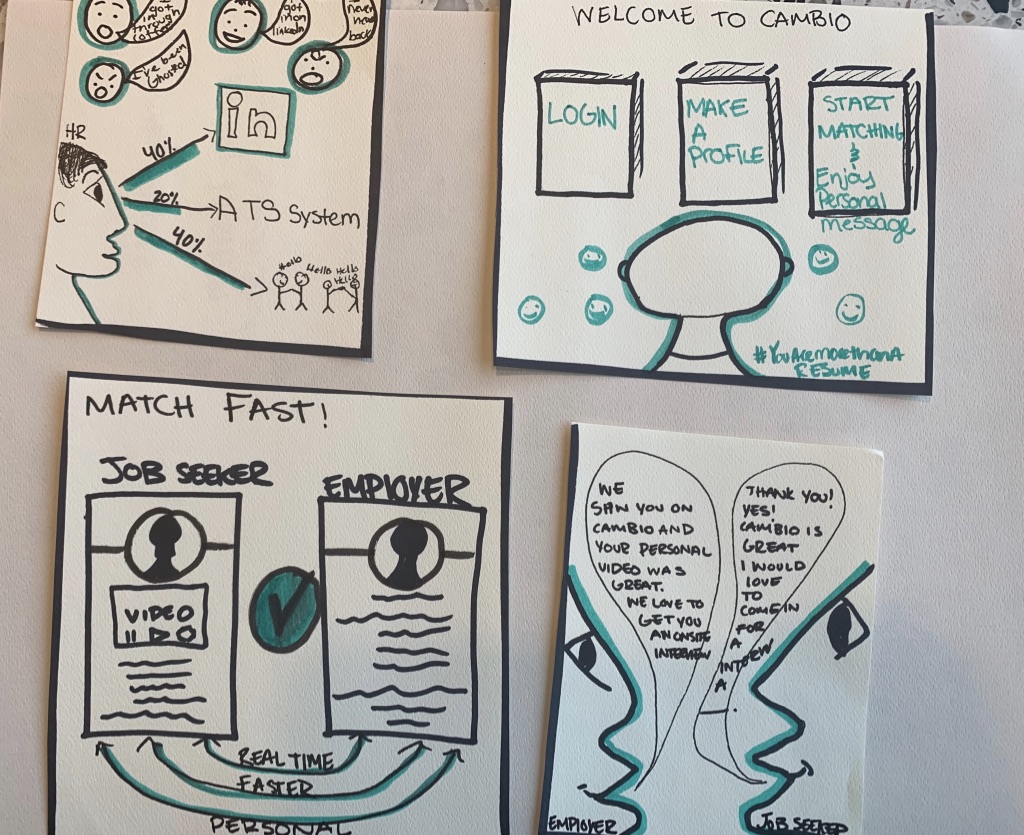 got
in
through
got
in on
linkedin
never
back
I've been
Ghosted
in
HR
40%
20%
ATS System
40%
C
Hello
Hello Hello
Hello
WELCOME TO CAMBIO
LOGIN
MAKE
A
PROFILE
START
MATCHING
&
Enjoy
Personal
message
#YouAremorethanA
RESUME
MATCH FAST!
JOB SEEKER
EMPLOYER
VIDEO
REAL TIME
FASTER
PERSONAL
WE
SAW YOU ON
CAMBIO AND
YOUR PERSONAL
VIDEO WAS
GREAT.
WE LOVE TO
GET YOU
AN ONSITE
INTERVIEW
THANK YOU!
YES!
CAMBIO IS
GREAT
I WOULD
LOVE
TO
COME IN
FOR
A
INTERVW
A
EMPLOYER
JOB SEEKER